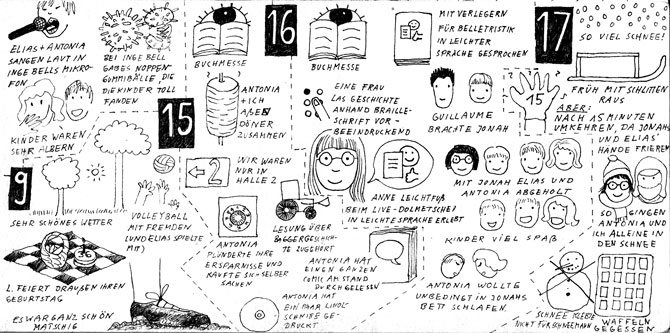 9
SEHR SCHÖNES WETTER
L. FEIERT DRAUßEN IHREN
GEBURTSTAG
ES WAR GANZ SCHÖN
MATSCHIG
ELIAS + ANTONIA
SANGEN LAUT IN
INGE BELLS MIKRO-
FON
KINDER WAREN
SEHR ALBERN
BEI INGE BELL
GABES NOPPEN-
GUMMIBÄLLE DIE
DIE KINDER TOLL
FANDEN
15
VOLLEYBALL
MIT FREMDEN
(UND ELIAS SPIELTE
MIT)
BUCHMESSE
ANTONIA
+ ICH
AßEN
DÖNER
ZUSAMMEN
2
WIR WAREN
NUR IN
HALLE 2
ANTONIA
PLÜNDERTE IHRE
ERSPARNISSE UND
KAUFTE SICH SELBER
SACHEN
ANTONIA HAT
EIN PAAR LINOL-
SCHNITTE GE-
DRUCKT
16
BUCHMESSE
MIT VERLEGERN
FÜR BELLETRISTIK
IN LEICHTER
SPRACHE GESPROCHEN
EINE FRAU
LAS GESCHICHTE
ANHAND BRAILLE-
SCHRIFT VOR -
BEEINDRUCKEND
ANNE LEICHTFUß
BEIM LIVE-DOLMETSCHEN
IN LEICHTE SPRACHE ERLEBT
LESUNG ÜBER
BAGGERGESCHICH-
TE ZUGEHÖRT
ANTONIA HAT
EINEN GANZEN
COMIC AM STAND
DURCHGELESEN
GUILLAUME
BRACHTE JONAH
MIT JONAH ELIAS UND
ANTONIA ABGEHOLT
KINDER VIEL SPAß
ANTONIA WOLLTE
UNBEDINGT IN JONAHS
BETT SCHLAFEN
17
SO VIEL SCHNEE!
FRÜH MIT SCHLITTEN
RAUS
15
ABER:
NACH 15 MINUTEN
UMKEHREN, DA JONAHS
UND ELIAS'
HÄNDE FRIEREN
SO GINGEN
ANTONIA UND
ICH ALLEINE IN
DEN SCHNEE
SCHNEE KLEBTE
NICHT FÜR SCHNEEMANN
WAFFELN
GEGESSEN